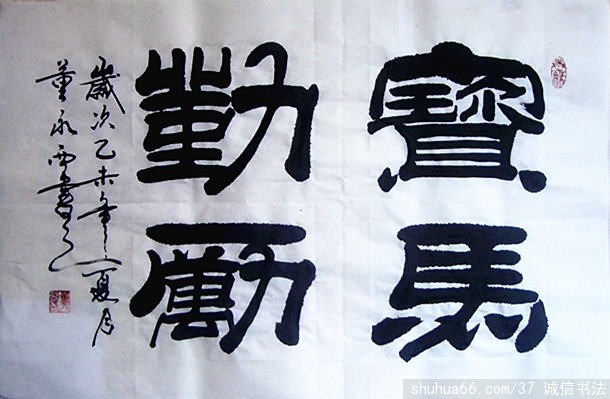 寳馬
勤勵
歲次乙未年之夏月
董永西書之
shuhua66.com/37 诚信书法